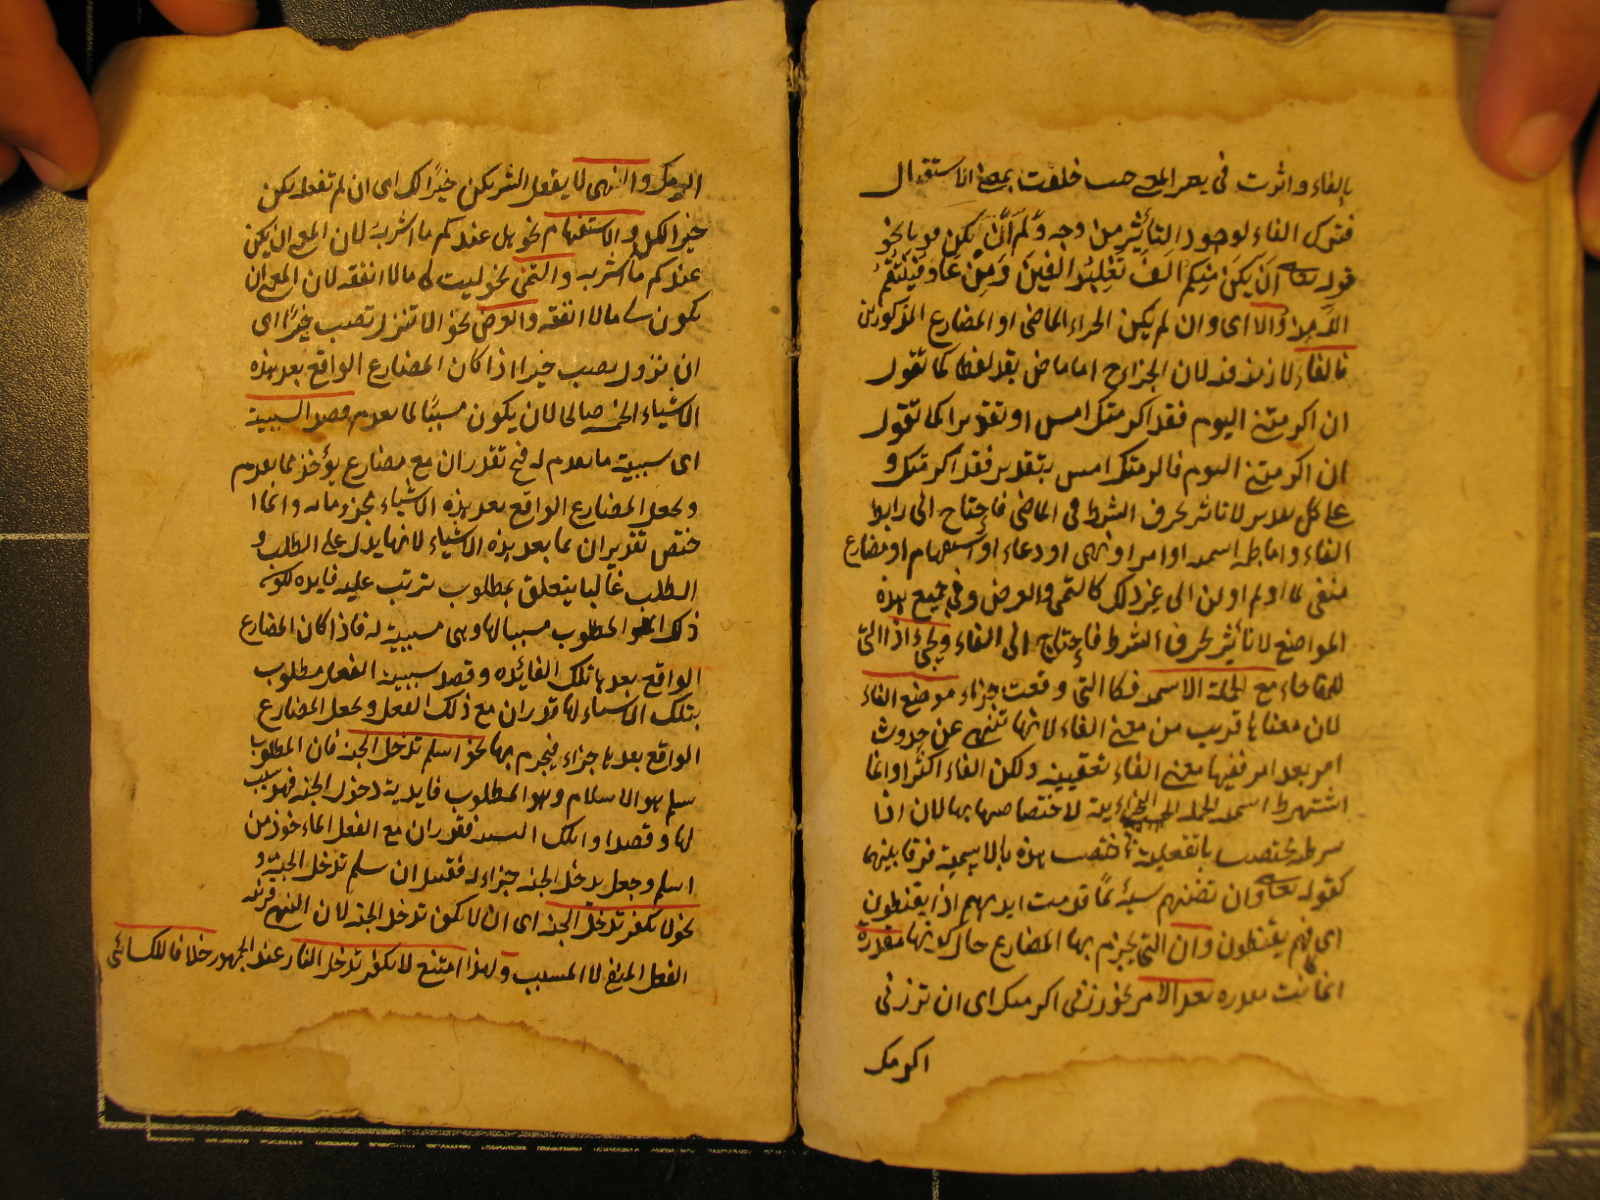 بالفاء واثرت في بعر المعنى حيث خلفت بمعنى الاستقبال
فترك الفاء لوجود التأثير من وجه ولم ان يكن نحو
قوله تعالى ان يكن منكم الف تغلبوا الفين ومن عاد فينتقم
الله منه والا اى وان لم يكن الجزاء الماضى او المضارع المذكورين
فالفاء لازمة فيه لان الجزاء ح اما ماض بقد لفظا كما تقول
ان اكرمتنى اليوم فقد اكرمتك امس او تقديرا كما تقول
ان اكرمتنى اليوم فاكرمتك امس بتقدير فقد اكرمتك و
على كل تقدير لا تاثير لحرف الشرط فى الماضى فاحتاج الى رابط
الفاء واما جملة اسمية او امر او نهى او دعاء او استفهام او مضارع
منفى بما او لم او لن الى غير ذلك كالتمنى والعرض وفى جميع هذه
المواضع لا تأثير لحرف الشرط فاحتاج الى الفاء ويجئ اذا التى
للمفاجاة مع الجملة الاسمية التى وقعت جزاء موضع الفاء
لان معناها قريب من معنى الفاء لانها تنبئ عن حدوث
امر بعد امر ففيها معنى الفاء تعقيبية ولكن الفاء اكثر وانما
اشترط اسمية الجملة الجزائية لاختصاصها بها لان اذا
شرطية تختص بالفعلية فاختصت هذه بالاسمية فرقا بينهما
كقوله تعالى وان تصبهم سيئة بما قدمت ايديهم اذا هم يقنطون
اى فهم يقنطون وان التى يجزم بها المضارع حال كونها مقدرة
انما كانت مقدرة بعد الامر نحو زرنى اكرمك اى ان تزرنى
اكرمك
اكرمك والنهى لا يفعل الشر يكن خيرا لك اى ان لم تفعله يكن
خيرا لك والاستفهام نحو هل عندكم ماء اشربه لان المعنى ان يكن
عندكم ماء اشربه والتمنى نحو ليت لى مالا انفقه لان المعنى ان
يكون لى مالا انفقه والعرض نحو الا تنزل تصب خيرا اى
ان تنزل تصب خيرا اذا كان المضارع الواقع بعد هذه
الاشياء الخمسة صالحا لان يكون مسببا لما تقدم وقصد السببية
اى سببية ما تقدم له فح تقدر ان مع مضارع يؤخذ مما تقدم
ويجعل المضارع الواقع بعد هذه الاشياء مجزوما به وانما ا
ختص تقدير ان بما بعد هذه الاشياء لانها يدل على الطلب و
الطلب غالبا يتعلق بمطلوب ترتب عليه فايدة لكونه
ذلك المطلوب مسببا لها وهى مسببية له فاذا كان المضارع
الواقع بعدها تلك الفائدة وقصد سببية الفعل مطلوب
بتلك الاشياء لها قدر ان مع ذلك الفعل ويجعل المضارع
الواقع بعدها جزاء فيجزم بها نحو اسلم تدخل الجنة فان المطلوب
سلم هو الاسلام وهو المطلوب فايدية دخول الجنة فهو سبب
لها وقصدا وتلك السببية فقدر ان مع الفعل الماءخوذ من
اسلم وجعل يدخل الجنة جزاء له فقيل ان تسلم تدخل الجنة و
نحو لا تكفر تدخل الجنة اى ان لا تكفر تدخل الجنة لان النهى قرينة
الفعل المنفى لا المسبب ولهذا امتنع لا تكفر تدخل النار عند الجمهور خلافا للكسائى